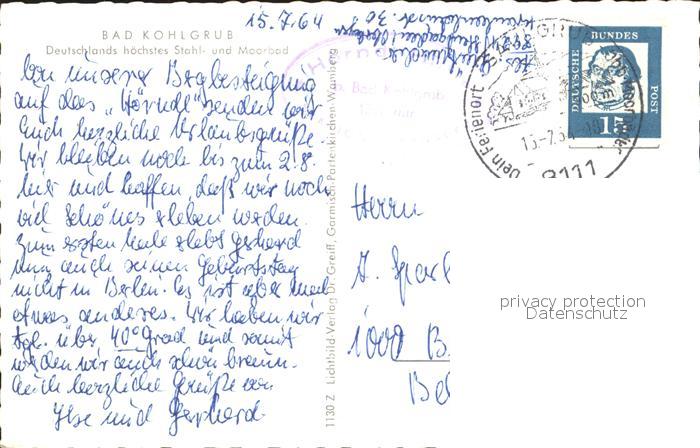 BAD KOHLGRUB
Deutschlands höchstes Stahl- und Moorbad
15.7.64
Von unserer Bergbesteigung
auf das "Hörndl" senden wir
Euch herzliche Urlaubsgrüße.
Wir bleiben noch bis zum 2.8.
hier und hoffen, daß wir noch
viel Schönes erleben werden.
Zum ersten Male erlebt Gerhard
nun auch seinen Geburtstag
nicht in Berlin. Es ist aber mal
etwas anderes. Wir haben wir
tgl. über 40° Grad und somit
werden wir auch schon braun.
Euch herzliche Grüße von
Ilse und Gerhard.
1130 Z Lichtbild-Verlag Dr. Greiff, Garmisch-Partenkirchen-Wamberg
Bad Kohlgrub
DEUTSCHE BUNDES POST
15
Dein Ferienort
8111
Herrn
1000 B
Be
privacy protection
Datenschutz